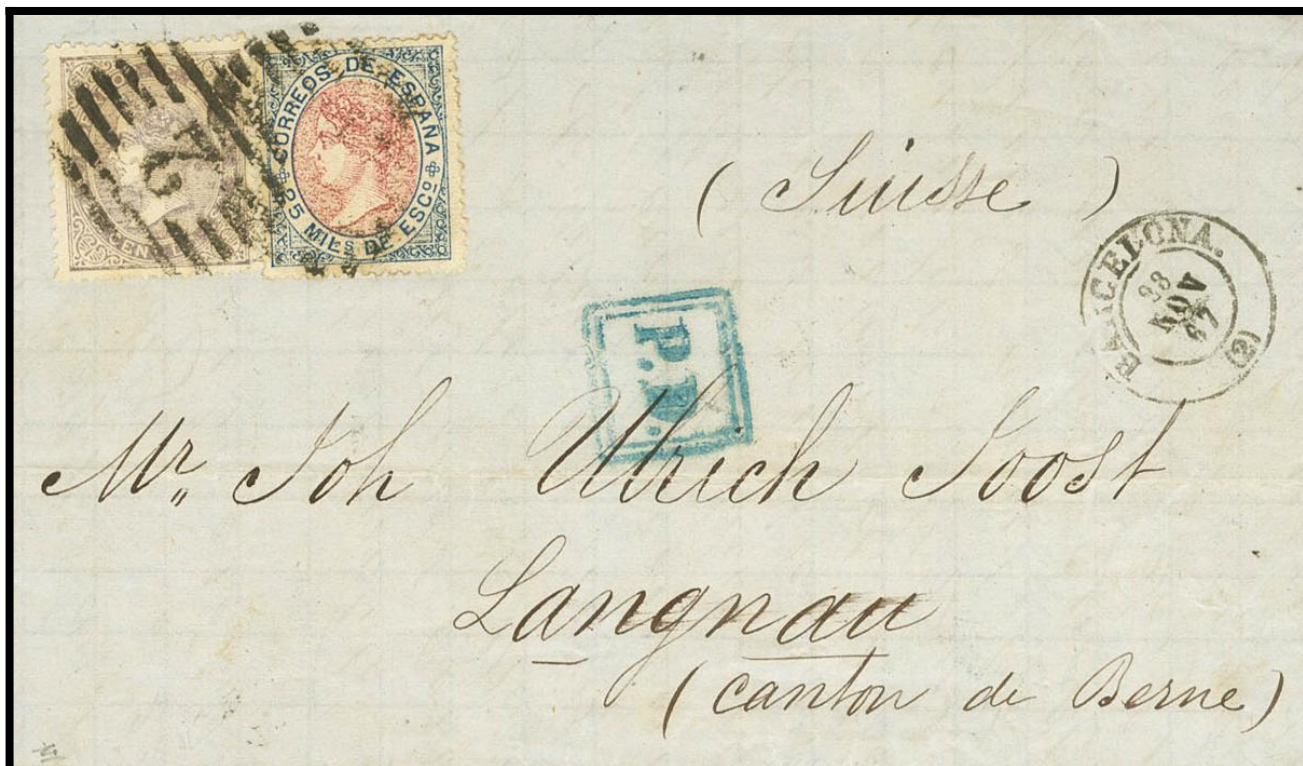 CORREOS DE ESPAÑA
25 MILs DE ESCo
2
(Suisse)
BARCELONA.
(2)
68
P.D.
Mr,, Joh Ulrich Joost
Langnau
(canton de Berne)